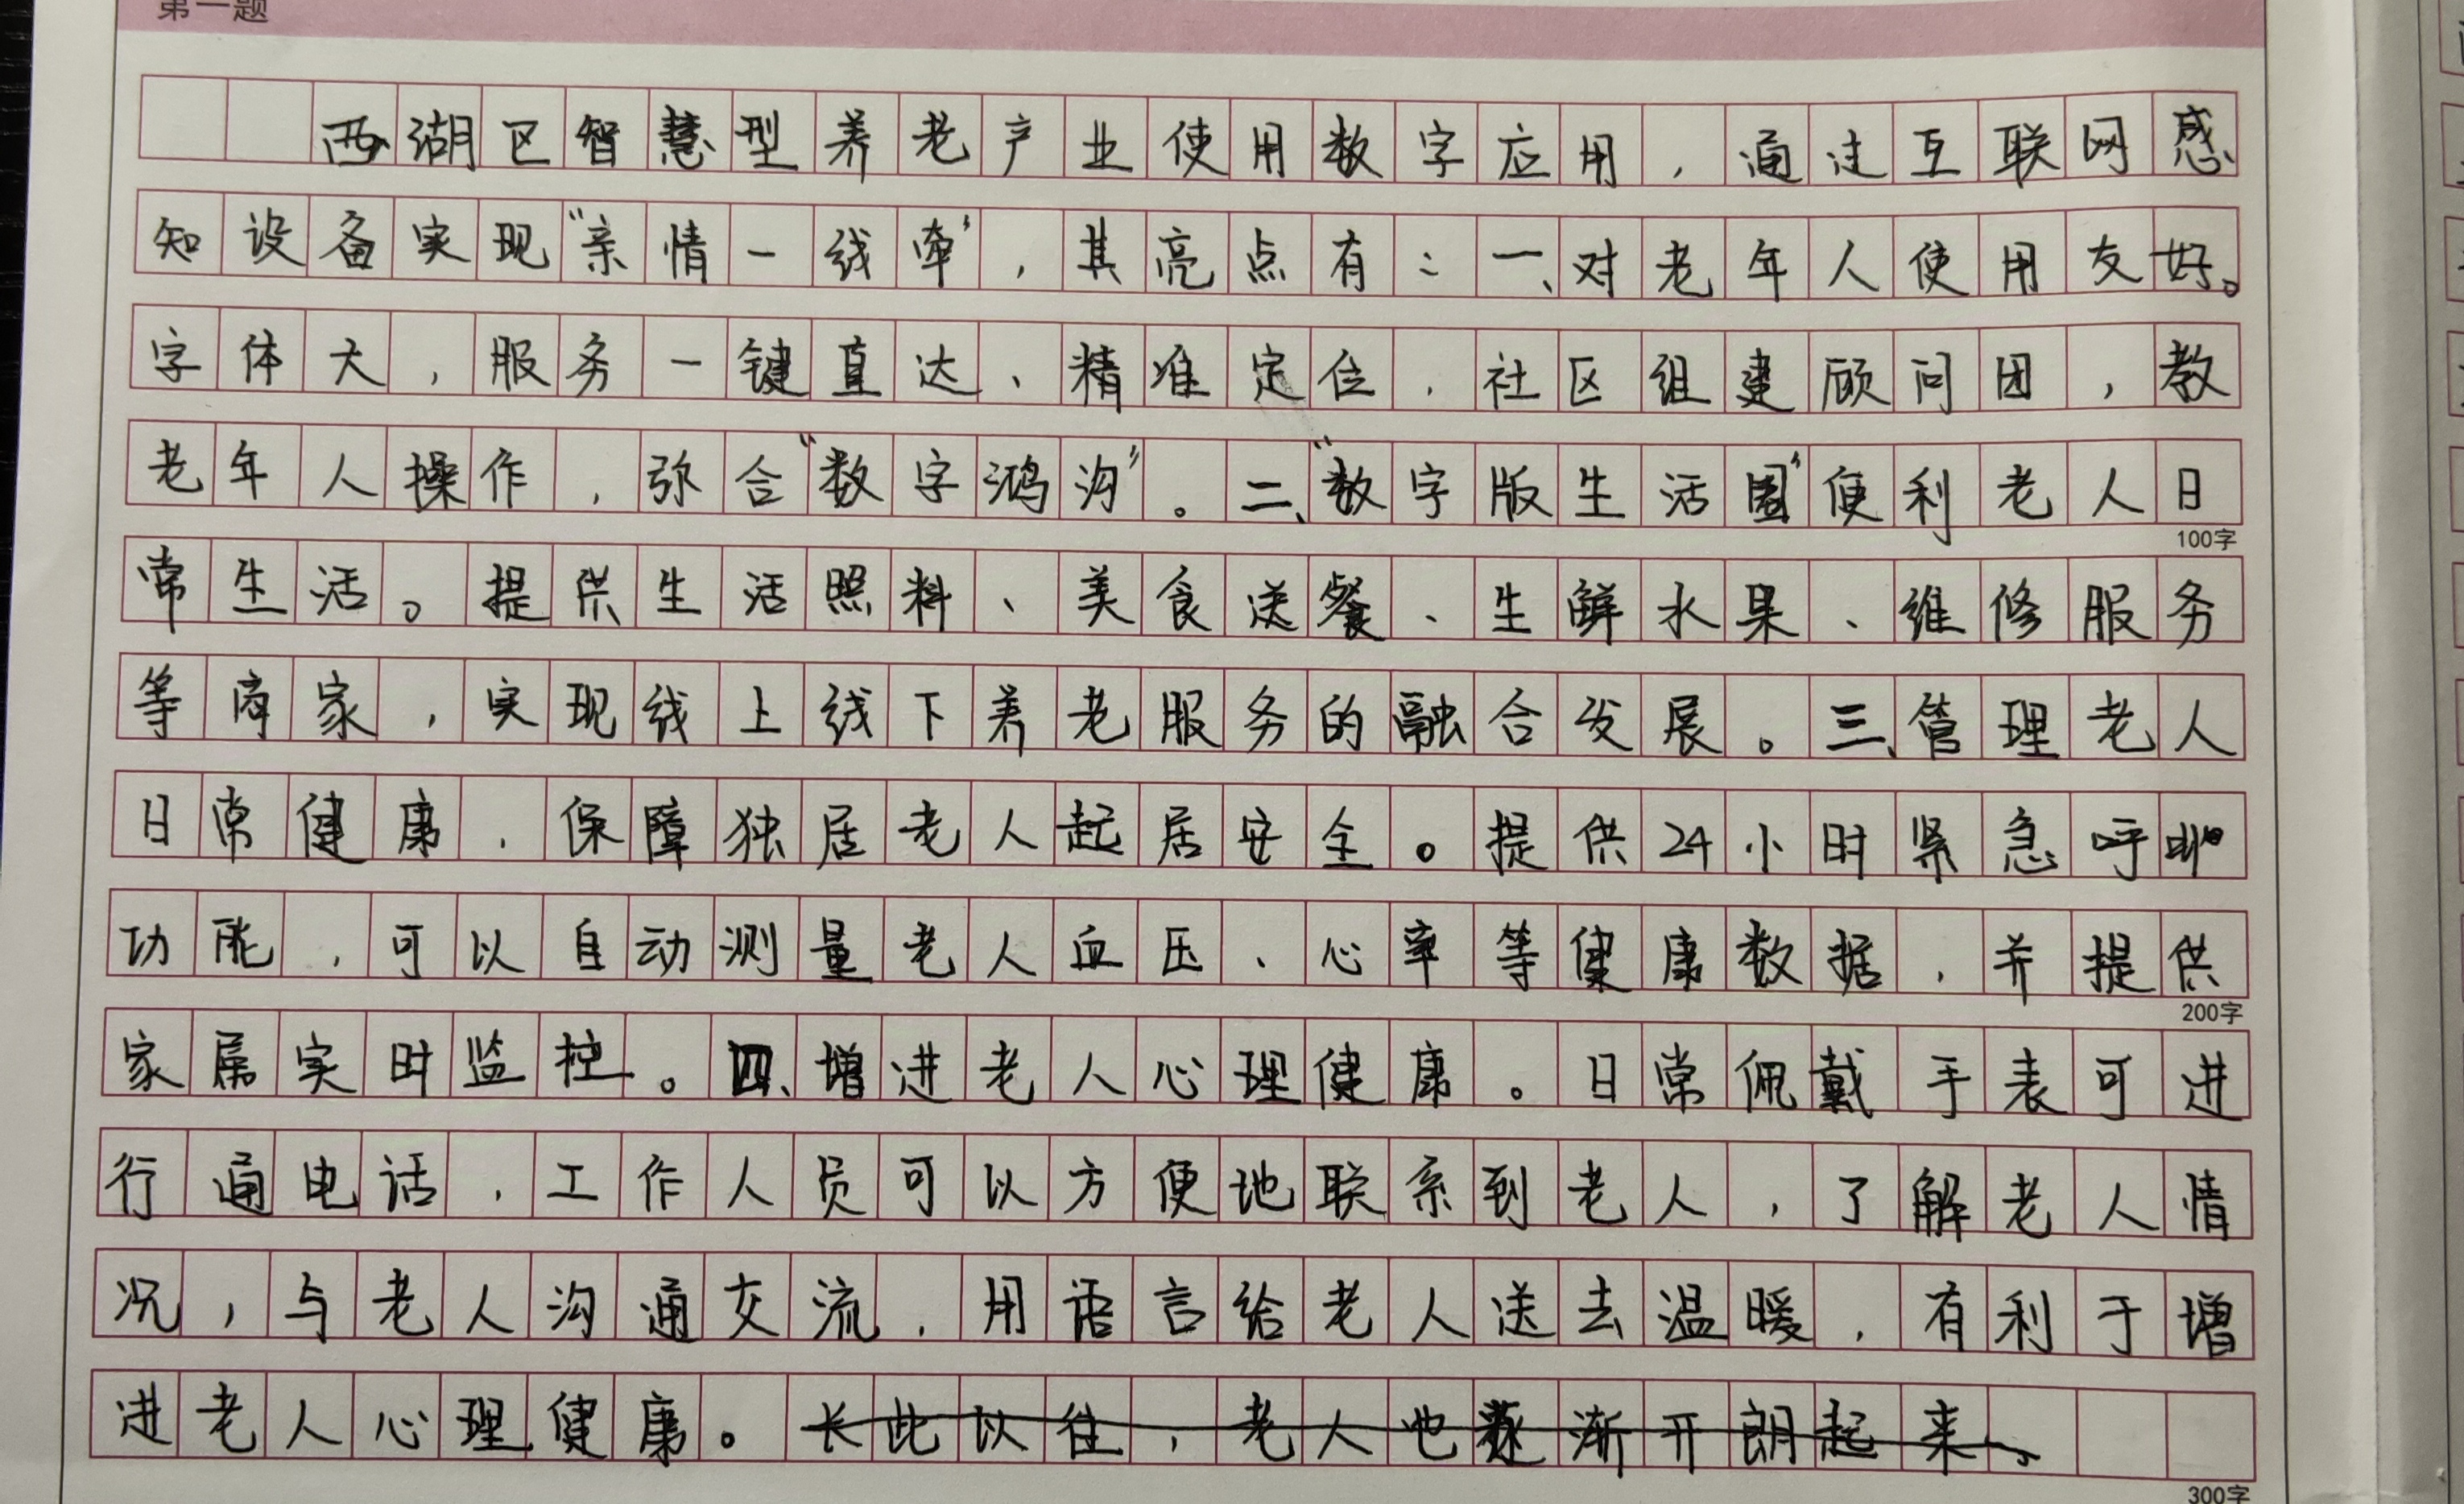 第一题
西湖区智慧型养老产业使用数字应用，通过互联网感
知设备实现“亲情一线牵”，其亮点有：一、对老年人使用友好。
字体大，服务一键直达、精准定位，社区组建顾问团，教
老年人操作，弥合“数字鸿沟”。二、“数字版生活圈”便利老人日
100字
常生活。提供生活照料、美食送餐、生鲜水果、维修服务
等商家，实现线上线下养老服务的融合发展。三、管理老人
日常健康，保障独居老人起居安全。提供24小时紧急呼叫
功能，可以自动测量老人血压、心率等健康数据，并提供
200字
家属实时监控。四、增进老人心理健康。日常佩戴手表可进
行通电话，工作人员可以方便地联系到老人，了解老人情
况，与老人沟通交流，用语言给老人送去温暖，有利于增
进老人心理健康。长此以往，老人也逐渐开朗起来。
300字